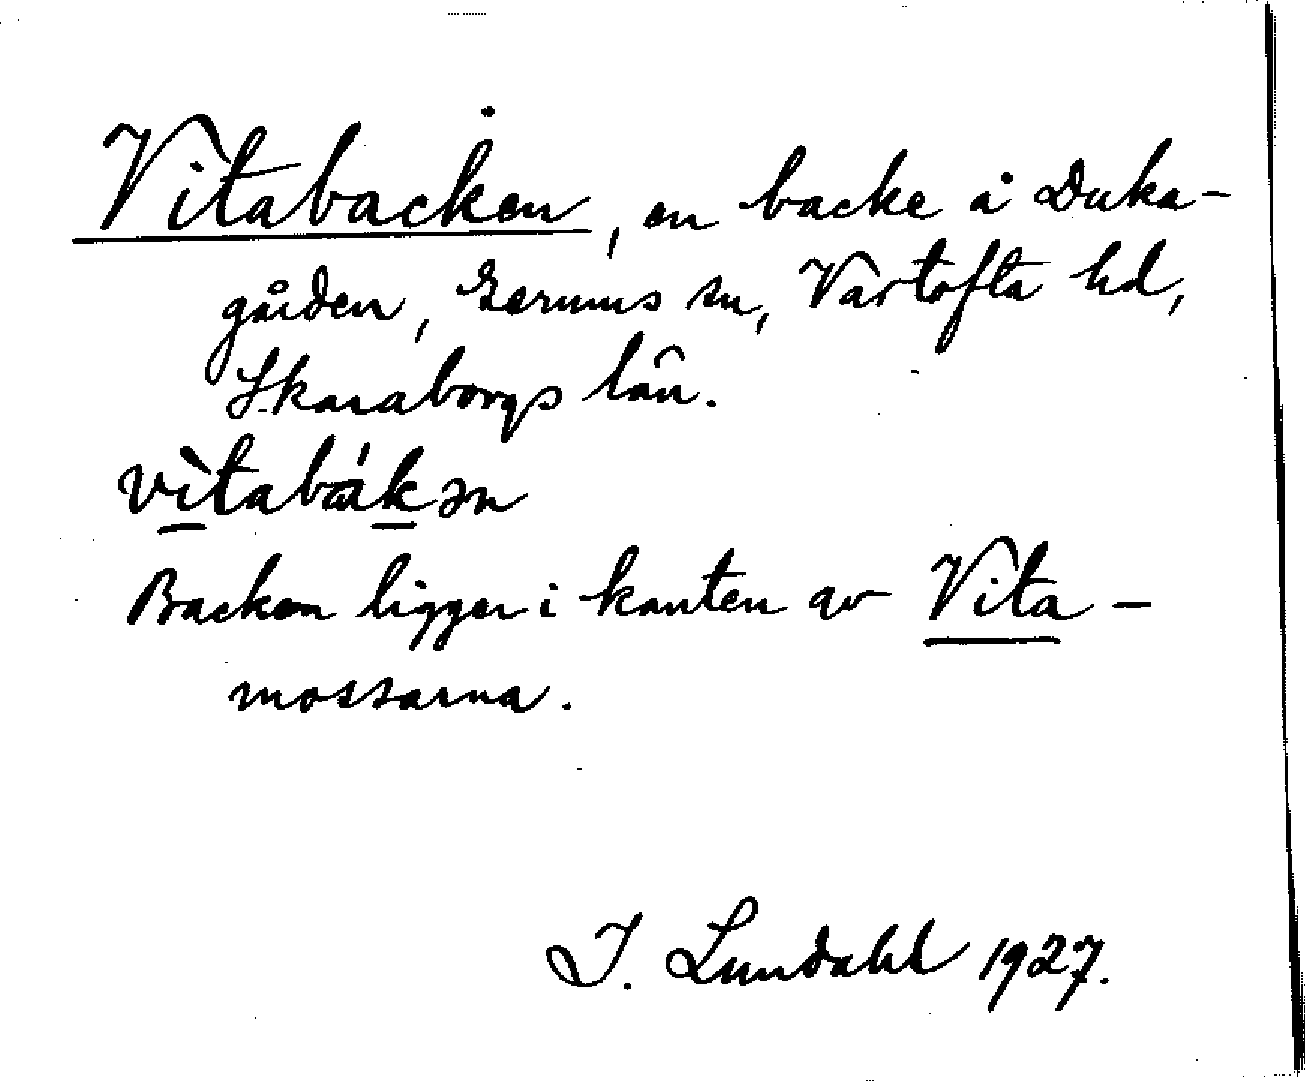 Vitabacken, en backe å Duka-
gården, Gerums sn, Vartofta hd,
Skaraborgs län.
vìtabák ən
Backen ligger i kanten av Vita-
mossarna.
I. Lundahl 1927.